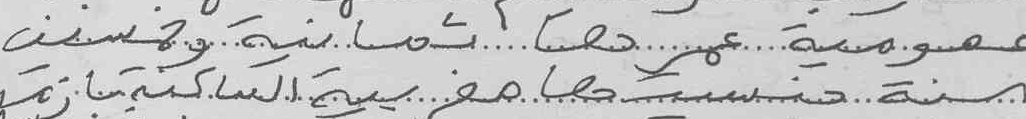 عمومية عمرها ثمانية وخمسين
سنة جنسيتها مغربية الساكنة بزنقة